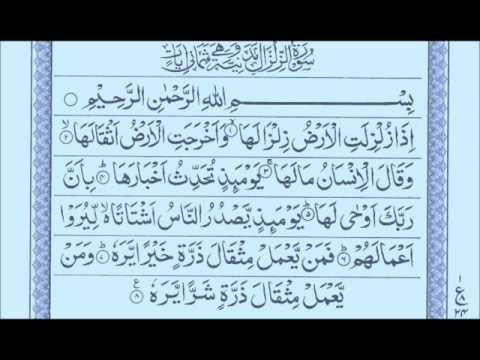 سُوْرَةُ الزِّلْزَالِ مَدَنِيَّةٌ وَّهِيَ ثَمَانِيْ اٰيَاتٍ
بِسْمِ اللهِ الرَّحْمٰنِ الرَّحِيْمِ
اِذَا زُلْزِلَتِ الْاَرْضُ زِلْزَالَهَا ۙ۱ وَاَخْرَجَتِ الْاَرْضُ اَثْقَالَهَا ۙ۲
وَقَالَ الْاِنْسَانُ مَا لَهَا ۚ۳ يَوْمَىِٕذٍ تُحَدِّثُ اَخْبَارَهَا ۙ۴ بِاَنَّ
رَبَّكَ اَوْحٰى لَهَا ؕ۵ يَوْمَىِٕذٍ يَّصْدُرُ النَّاسُ اَشْتَاتًا ۙ۬ لِّيُرَوْا
اَعْمَالَهُمْ ؕ۶ فَمَنْ يَّعْمَلْ مِثْقَالَ ذَرَّةٍ خَيْرًا يَّرَهٗ ؕ۷ وَمَنْ
يَّعْمَلْ مِثْقَالَ ذَرَّةٍ شَرًّا يَّرَهٗ ۸ ع
۱
ع ۸
۲۴